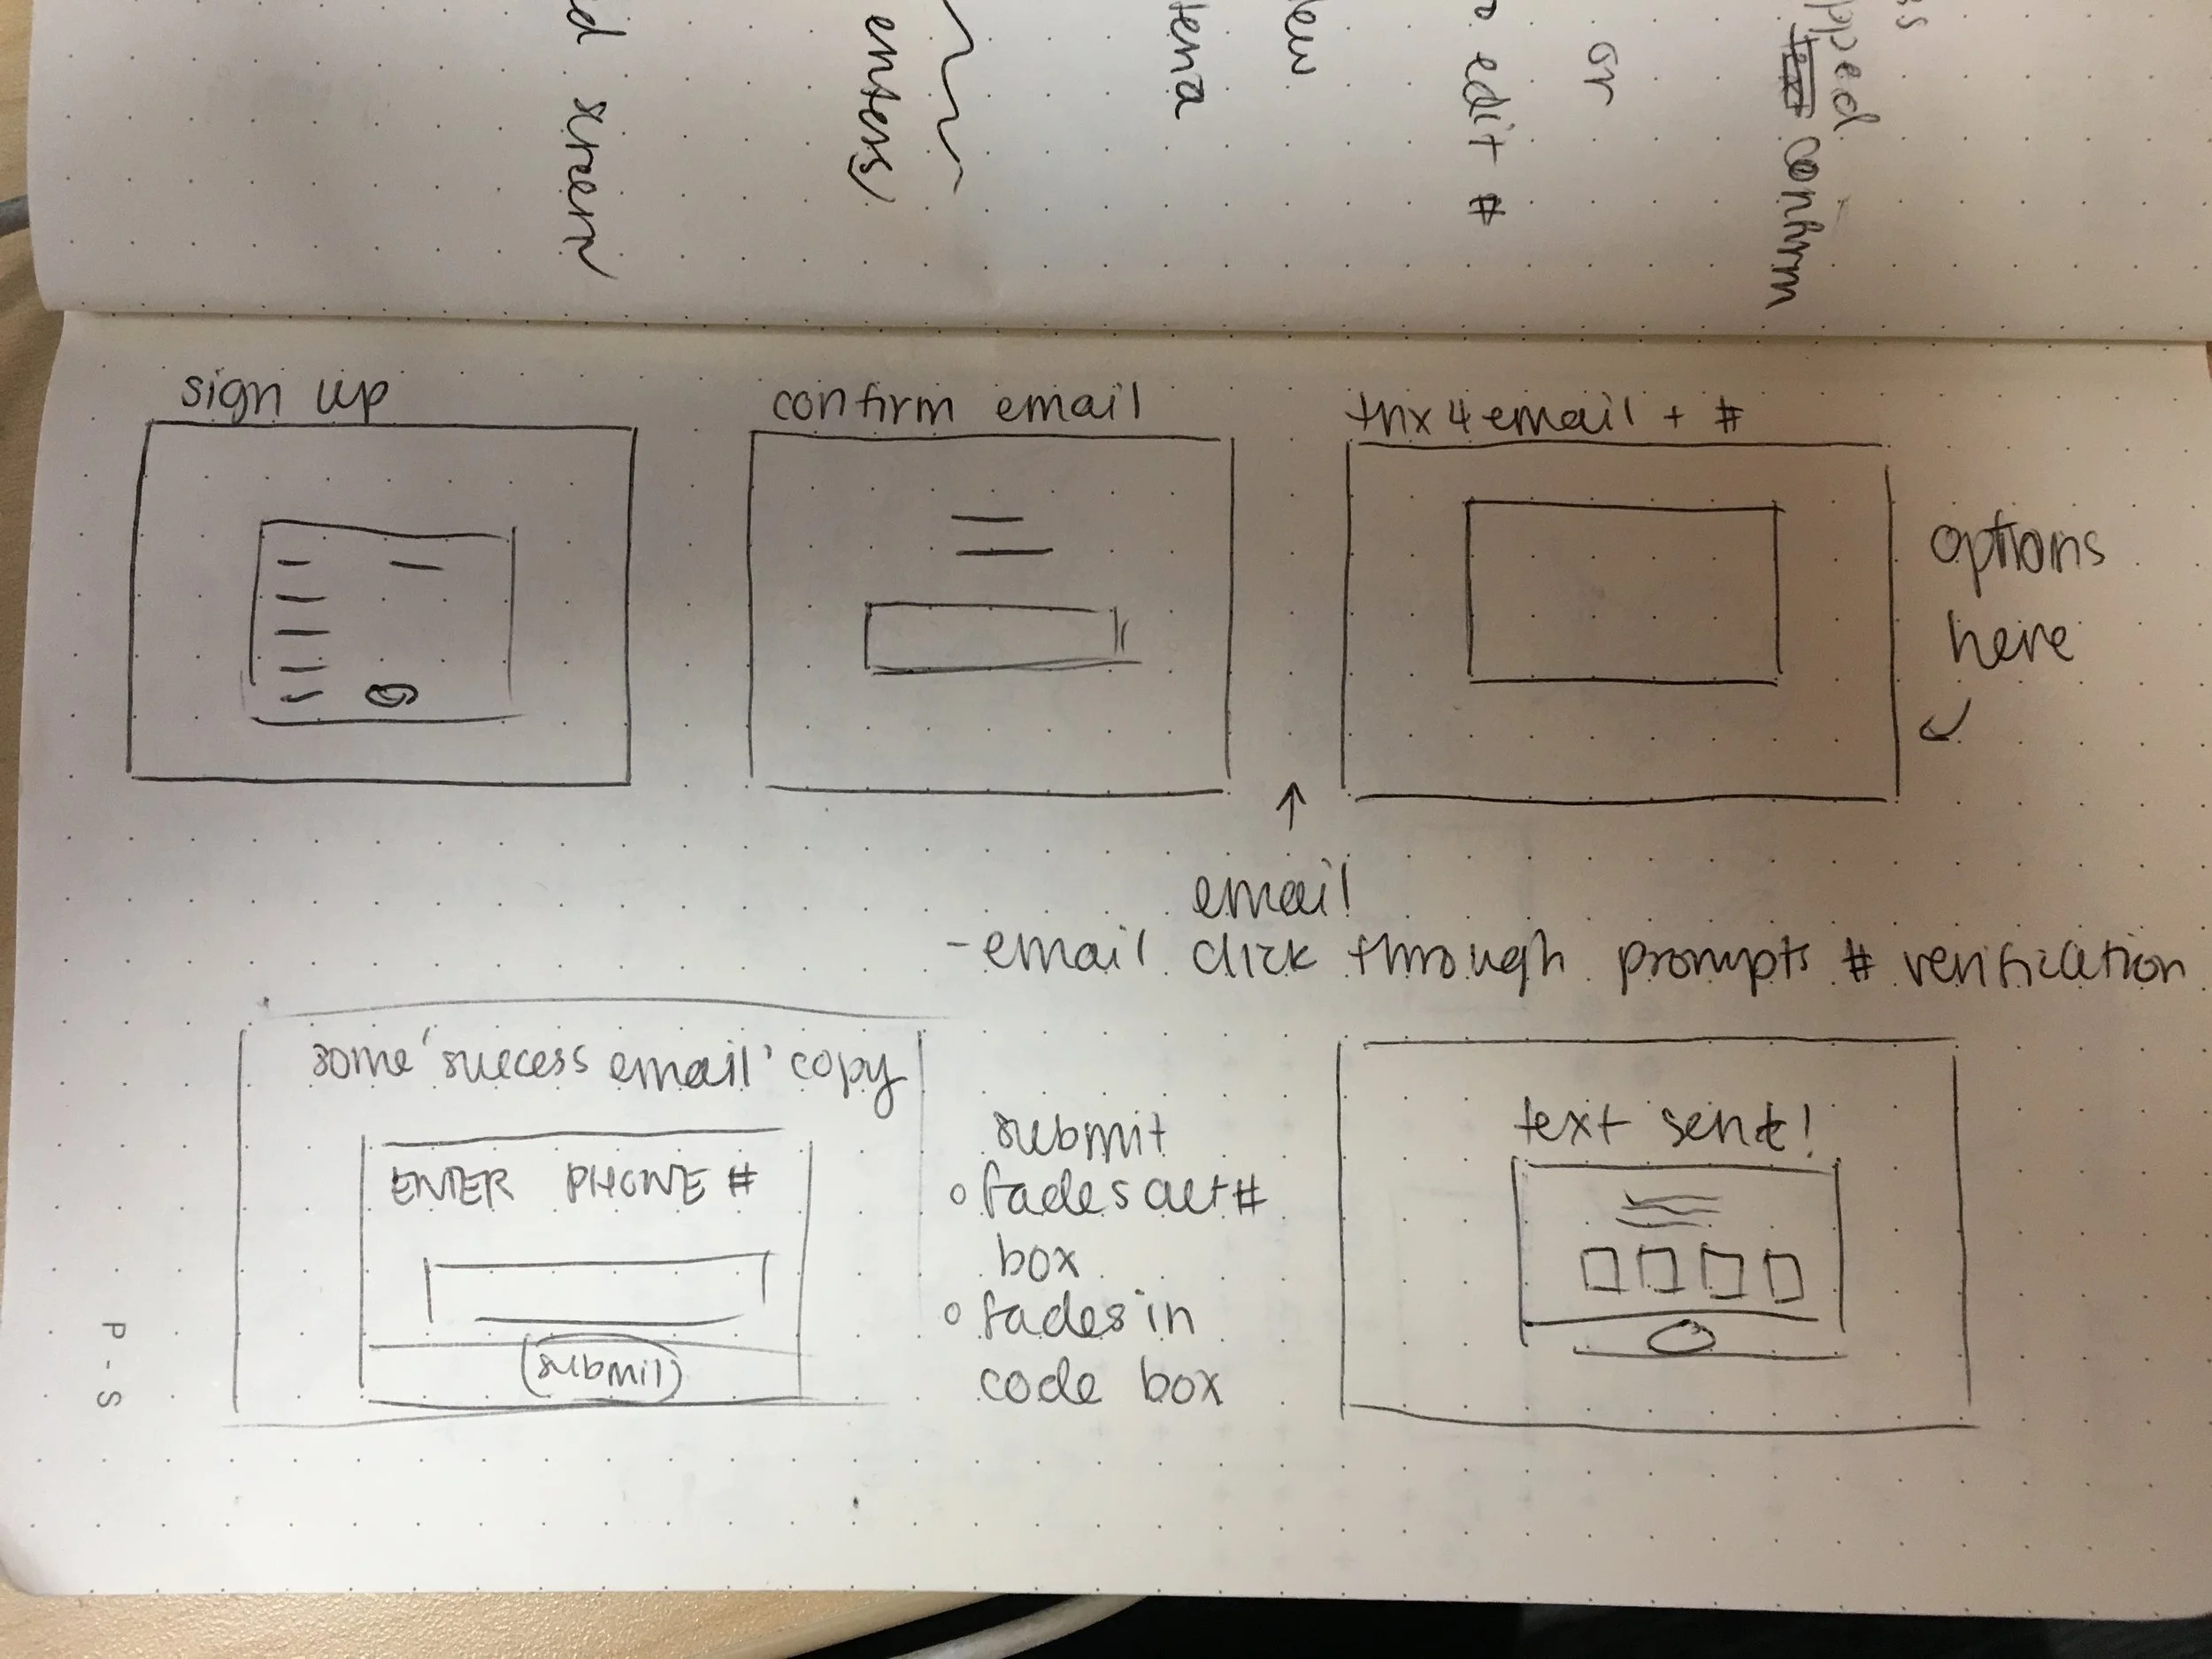 screen
enters/
tema
edit #
or
confirm
sign up
confirm email
thx 4 email + #
options
here
email
- email click through prompts # verification
some 'success email' copy
ENTER PHONE #
submit
submit
fades out #
box
fades in
code box
text sent!
P-S